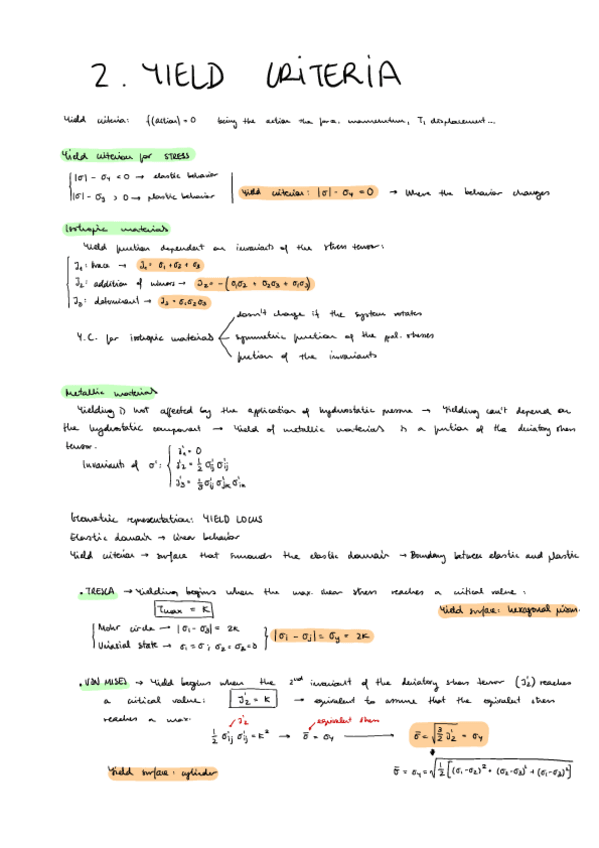 2. YIELD CRITERIA
Yield criteria: f(action) = 0 being the action the force, momentum, T, displacement...
Yield criterion for STRESS
|σ| - σy < 0 → elastic behavior
|σ| - σy > 0 → plastic behavior
Yield criterion: |σ| - σy = 0 → Where the behavior changes
Isotropic materials
Yield function dependent on invariants of the stress tensor:
J1: trace → J1 = σ1 + σ2 + σ3
J2: addition of minors → J2 = -(σ1σ2 + σ2σ3 + σ1σ3)
J3: determinant → J3 = σ1σ2σ3
doesn't change if the system rotates
Y.C. for isotropic materials symmetric function of the pal. stresses
function of the invariants
Metallic materials
Yielding is not affected by the application of hydrostatic pressure → Yielding can't depend on
the hydrostatic component → Yield of metallic materials is a function of the deviatory stress
tensor.
Invariants of σ':
J'1 = 0
J'2 = 1/2 σ'ij σ'ij
J'3 = 1/3 σ'ij σ'jk σ'ik
Geometric representation: YIELD LOCUS
Elastic domain → linear behavior
Yield criterion → surface that surrounds the elastic domain → Boundary between elastic and plastic
• TRESCA → Yielding begins when the max. shear stress reaches a critical value:
τmax = K
Yield surface: hexagonal prism.
Mohr circle → |σ1 - σ3| = 2K
Uniaxial state → σ1 = σ; σ2 = σ3 = 0
|σi - σj| = σy = 2K
• VON MISES → Yield begins when the 2nd invariant of the deviatory stress tensor (J'2) reaches
a critical value: J'2 = K → equivalent to assume that the equivalent stress
reaches a max.
J'2
equivalent stress
1/2 σ'ij σ'ij = K² → σ̄ = σy → σ̄ = √(3/2 J'2) = σy
Yield surface: cylinder
σ̄ = σy = √(1/2 [(σ1-σ2)² + (σ2-σ3)² + (σ1-σ3)²])